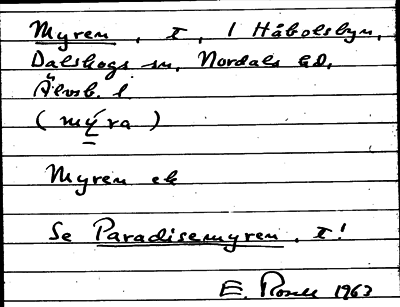 Myren, I, 1 Håbolsbyn,
Dalskogs sn, Nordals hd,
Älvsb. l
(mýra)
Myren ek
Se Paradisemyren, I!
E. 1963